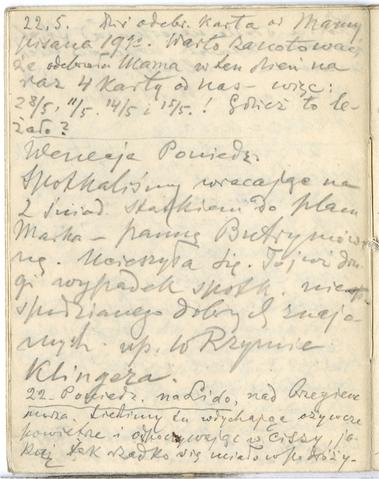 22.5. Dziś odebr. Karta od Mamy
pisana 19go. Warto zanotować,
że odebrała Mama w ten dzień na
raz 4 Karty od nas – więc:
28/5, 11/5. 14/5 i 15/5.! Gdzież to le-
żało?
Wenecja Poniedz.
Spotkaliśmy wracając na
2 śniad. statkiem do placu
Marka – pannę Butrymówn
nę. Ucieszyła się. To już dru-
gi wypadek spotk. nie
spodzianego dobrych znajo-
mych. np. w Rzymie
Klingera.
22. Poniedz. na Lido, nad brzegiem
morza. Siedzimy tu wdychając ożywcze
powietrze i odpoczywając w ciszy, ja-
kąś tak rzadko się miało w podróży.